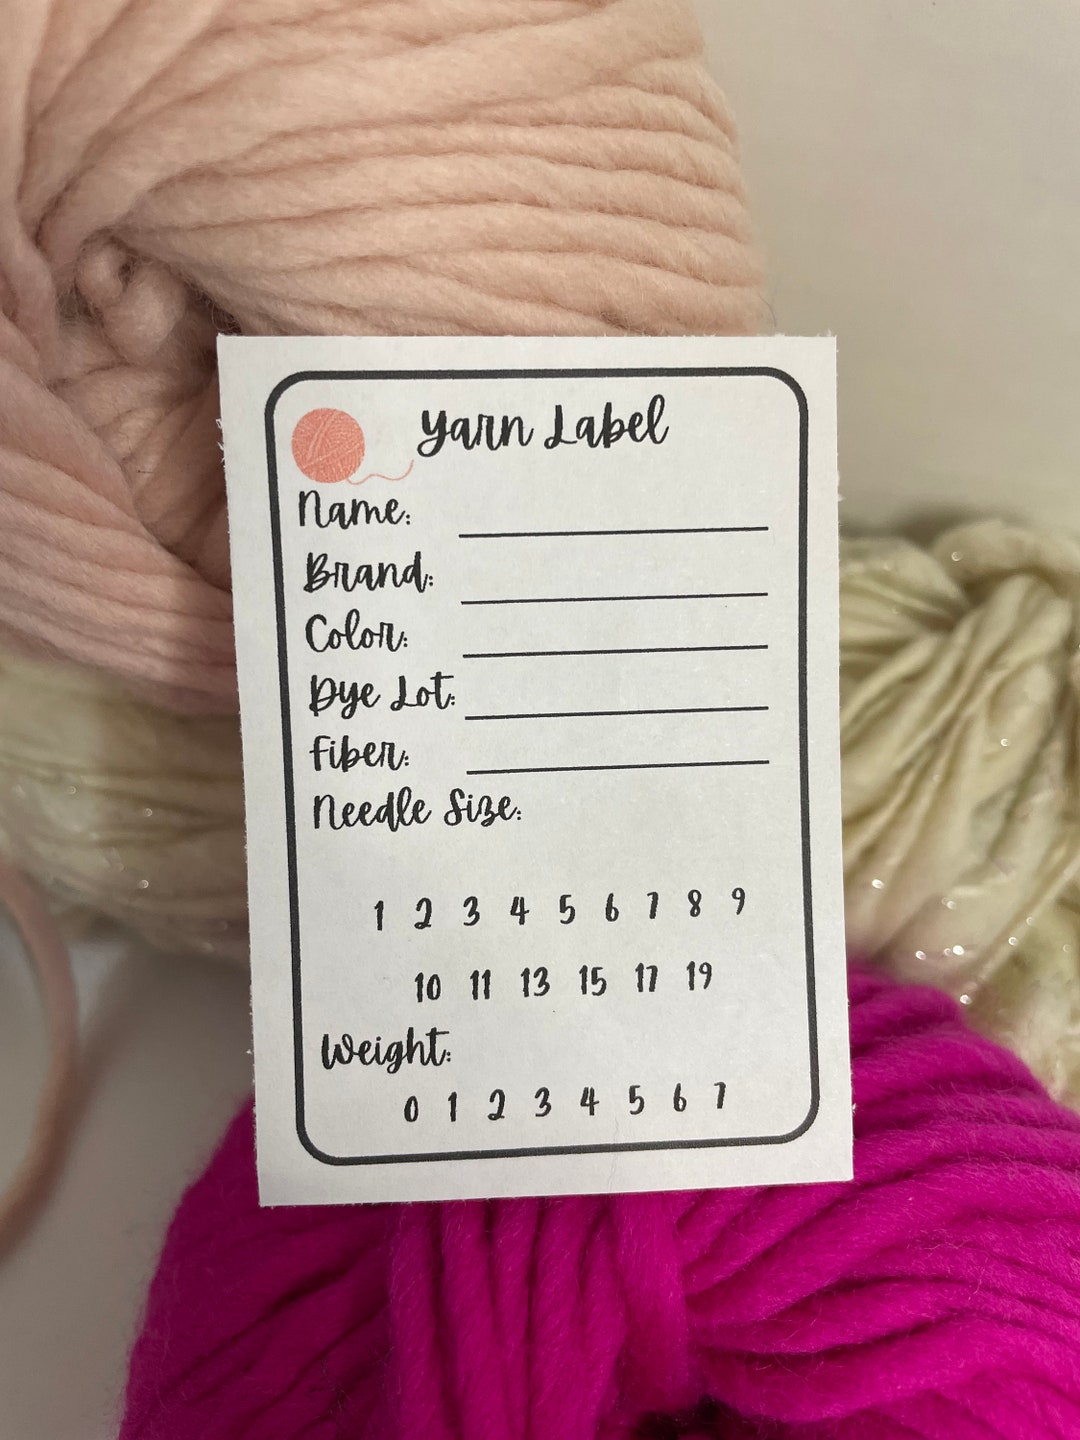 Yarn Label
Name:
Brand:
Color:
Dye Lot:
Fiber:
Needle Size:
1 2 3 4 5 6 7 8 9
10 11 13 15 17 19
Weight:
0 1 2 3 4 5 6 7